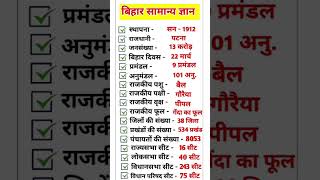 बिहार सामान्य ज्ञान
स्थापना - सन - 1912
राजधानी - पटना
जनसंख्या - 13 करोड़
बिहार दिवस - 22 मार्च
प्रमंडल - 9 प्रमंडल
अनुमंडल - 101 अनु.
राजकीय पशु - बैल
राजकीय पक्षी - गौरैया
राजकीय वृक्ष - पीपल
राजकीय फूल - गेंदा का फूल
जिलों की संख्या - 38 जिला
प्रखंडों की संख्या - 534 प्रखंड
पंचायतों की संख्या - 8053
राज्यसभा सीट - 16 सीट
लोकसभा सीट - 40 सीट
विधानसभा सीट - 243 सीट
विधान परिषद सीट - 75 सीट